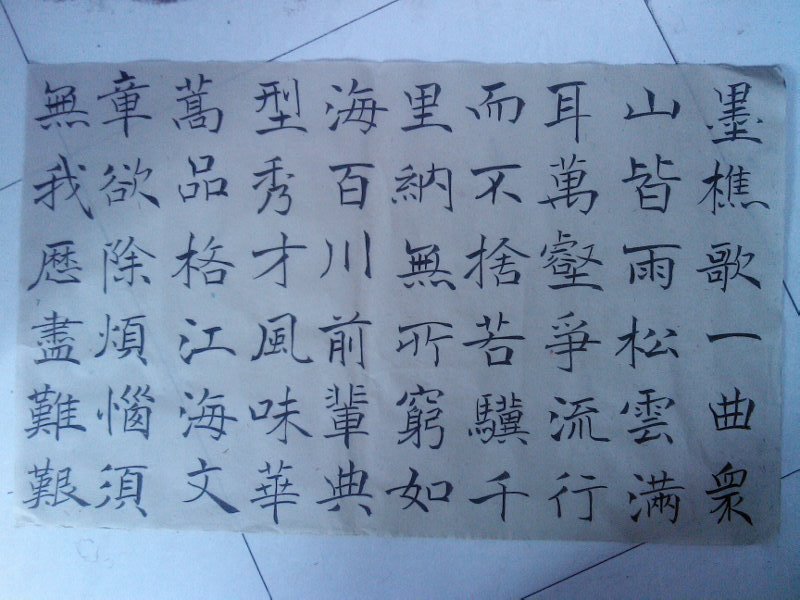 墨樵歌一曲眾
山皆雨松雲滿
耳萬壑爭流行
而不捨若驥千
里納無所窮如
海百川前輩典
型秀才風味華
蒿品格江海文
章欲除煩惱須
無我歷盡難艱